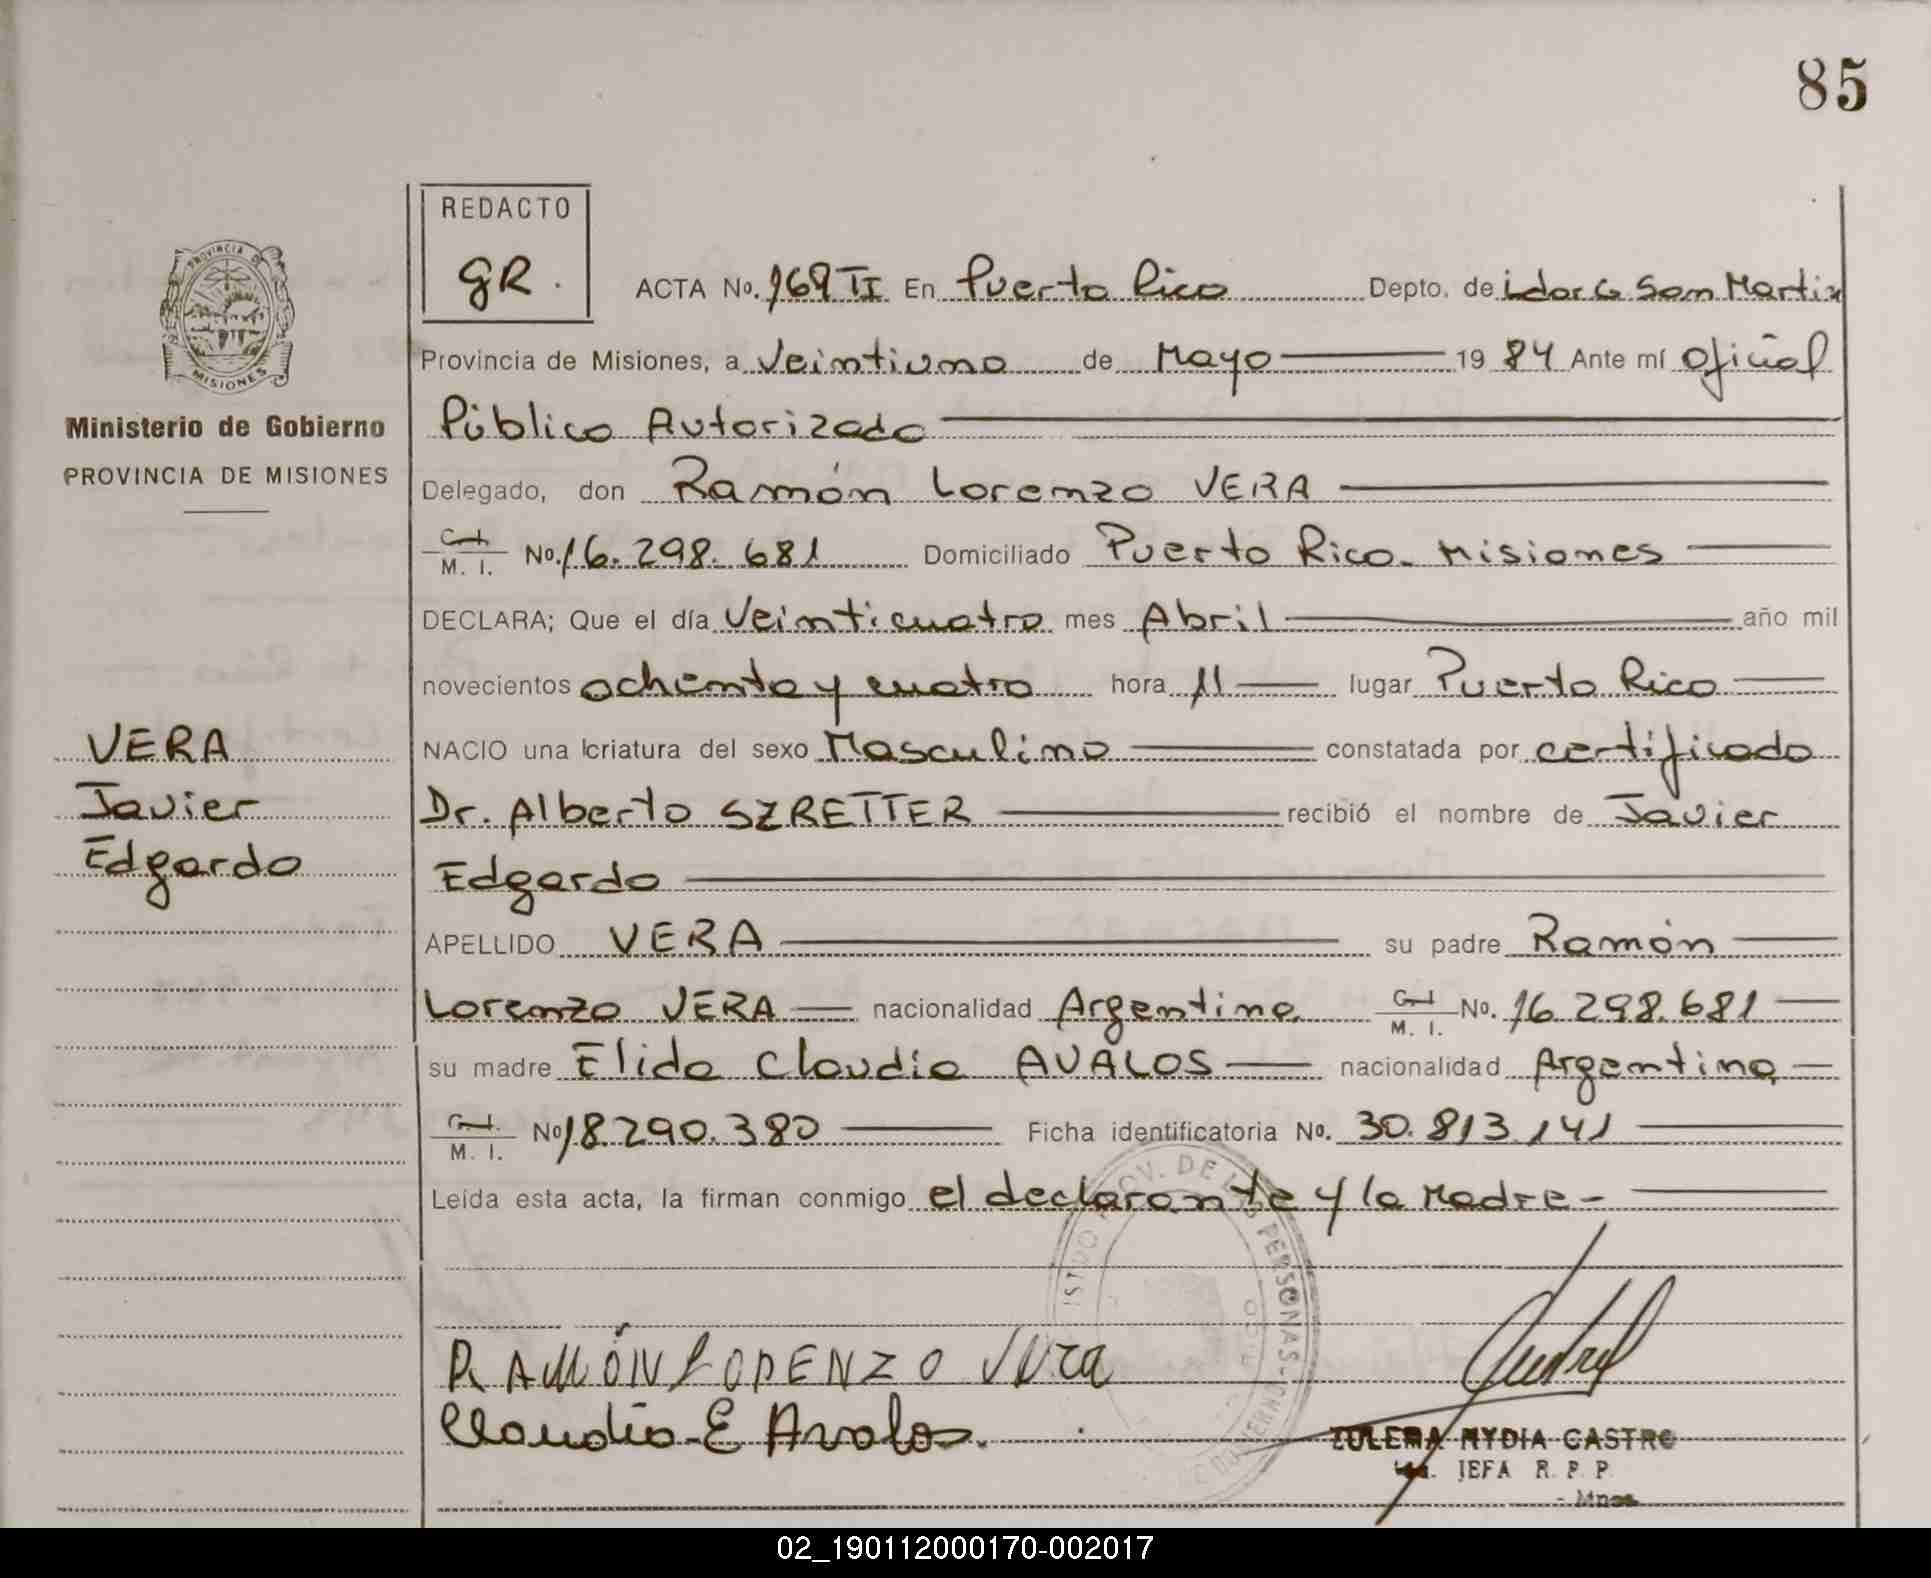 85
REDACTO
GR.
ACTA No. 169 TI En Puerto Rico Depto. de Ldor G San Martin
PROVINCIA DE MISIONES
Provincia de Misiones, a Veintiuno de Mayo 1984 Ante mí Oficial
Ministerio de Gobierno
PROVINCIA DE MISIONES
Público Autorizado
Delegado, don Ramón Lorenzo VERA
M. I. No. 16.298.681 Domiciliado Puerto Rico. Misiones
DECLARA; Que el día Veinticuatro mes Abril año mil
novecientos ochenta y cuatro hora 11 lugar Puerto Rico
VERA
Javier
Edgardo
NACIO una criatura del sexo Masculino constatada por certificado
Dr. Alberto SZRETTER recibió el nombre de Javier
Edgardo
APELLIDO VERA su padre Ramón
Lorenzo VERA nacionalidad Argentina M. I. No. 16.298.681
su madre Elida Claudia AVALOS nacionalidad Argentina
M. I. No 18.290.380 Ficha identificatoria No. 30.813.141
Leída esta acta, la firman conmigo el declarante y la Madre-
RAMÓN LORENZO Vera
Claudia E Avalos.
ZULEMA NYDIA CASTRO
JEFA R. P. P.
Mnes
02_190112000170-002017